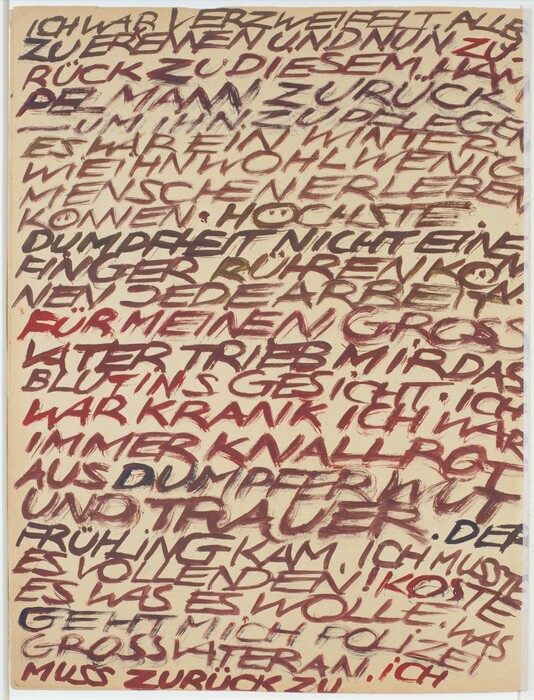 ICH WAR VERZWEIFELT. ALLES
ZU ERENEN UND NUN ZU
RÜCK ZU DIESEM HAM
PELMANN ZURÜCK
— UM IHN ZU PFLEGEN
ES WAR EIN WINTER –
WIE IHN WOHL WENIG
MENSCHEN ERLEBEN
KÖNNEN. HÖCHSTE
DUMPFHEIT NICHT EINEN
FINGER RÜHREN KÖN
NEN JEDE ARBEIT.
FÜR MEINEN GROSS
VATER TRIEB MIR DAS
BLUT INS GESICHT. ICH
WAR KRANK ICH WAR
IMMER KNALLROT
AUS DUMPFER WUT
UND TRAUER. DER
FRÜHLING KAM. ICH MUSSTE
ES VOLLENDEN! KOSTE
ES WAS ES WOLLE. WAS
GEHT MICH POLIZEI
GROSSVATER AN. ICH
MUSS ZURÜCK ZU